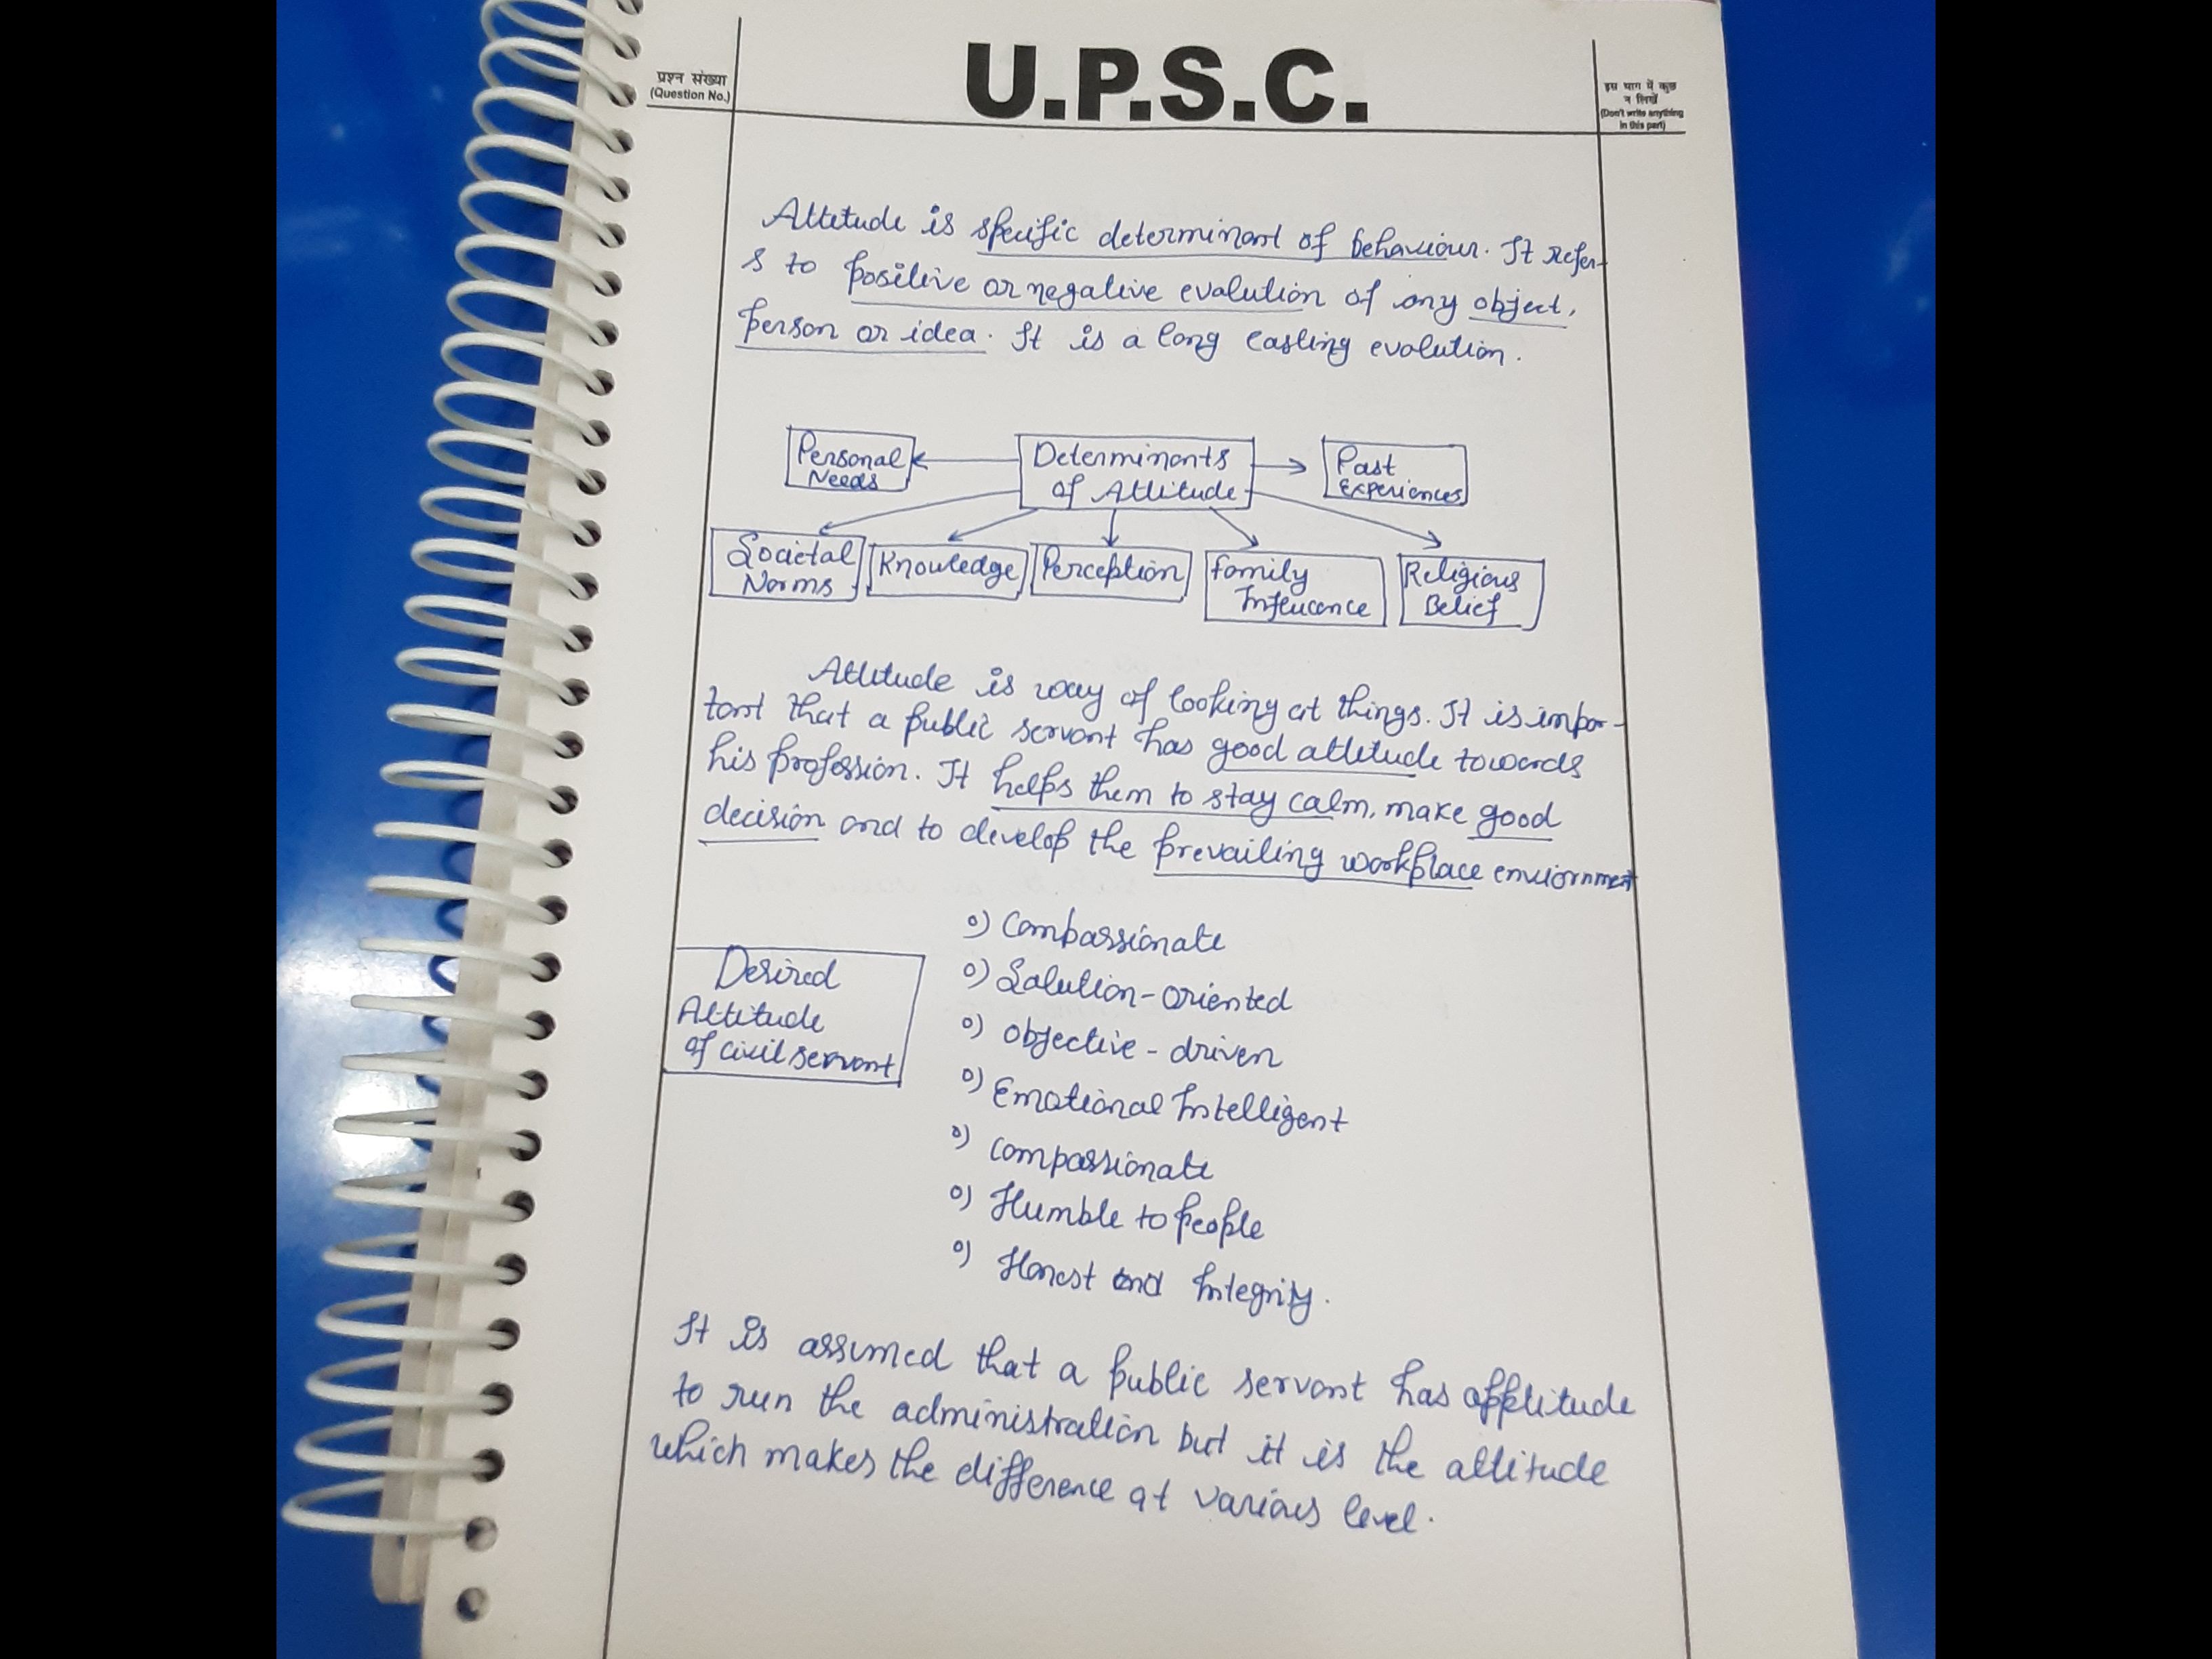 U.P.S.C.
प्रश्न संख्या
(Question No.)
इस भाग में कुछ
न लिखें
(Don't write anything
in this part)
Attitude is specific determinant of behaviour. It refer-
s to positive or negative evalution of any object,
person or idea. It is a long lasting evolution.
Personal
Needs
Determinants
of Attitude
Past
Experiences
Societal
Norms
Knowledge
Perception
Family
Influence
Religious
Belief
Attitude is way of looking at things. It is impor-
tant that a public servant has good attitude towards
his profession. It helps them to stay calm, make good
decision and to develop the prevailing workplace enviornment
Desired
Attitude
of civil servant
o) Compassionate
o) Solution-oriented
o) Objective-driven
o) Emotional Intelligent
o) Compassionate
o) Humble to people
o) Honest and Integrity.
It is assumed that a public servant has apptitude
to run the administration but it is the attitude
which makes the difference at various level.